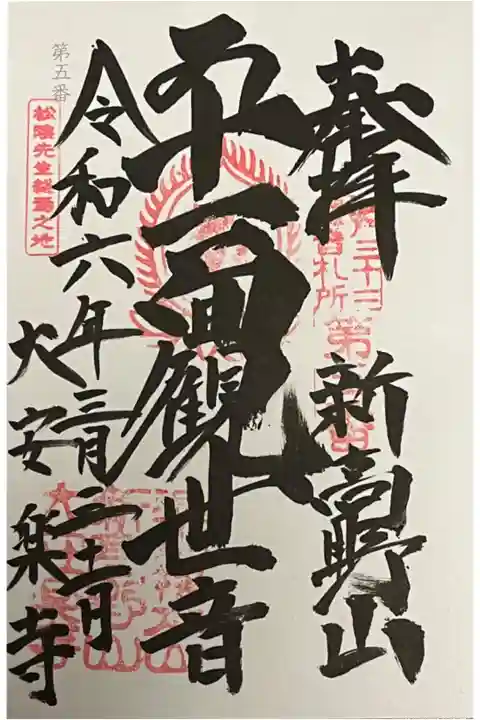 奉拝 新高野山
三十三
音札所
第
十一面観世音
令和六年三月三十一日
大安楽寺
第五番
松陰先生終焉之地